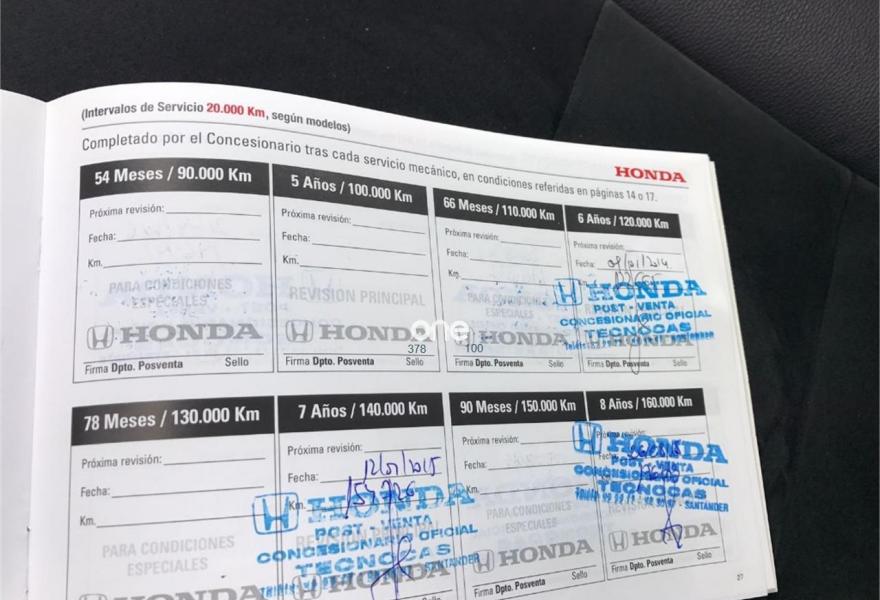 (Intervalos de Servicio 20.000 Km, según modelos)
Completado por el Concesionario tras cada servicio mecánico, en condiciones referidas en páginas 14 o 17.
HONDA
54 Meses / 90.000 Km
Próxima revisión:
Fecha:
Km.
PARA CONDICIONES
ESPECIALES
HONDA
Firma Dpto. Posventa Sello
5 Años / 100.000 Km
Próxima revisión:
Fecha:
Km.
REVISION PRINCIPAL
HONDA
Firma Dpto. Posventa Sello
66 Meses / 110.000 Km
Próxima revisión:
Fecha:
Km.
PARA CONDICIONES
ESPECIALES
HONDA
Firma Dpto. Posventa Sello
6 Años / 120.000 Km
Próxima revisión:
Fecha:
HONDA
POST - VENTA
CONCESIONARIO OFICIAL
TECNOCAS
HONDA
Firma Dpto. Posventa Sello
one
378 100
78 Meses / 130.000 Km
Próxima revisión:
Fecha:
Km.
PARA CONDICIONES
ESPECIALES
HONDA
7 Años / 140.000 Km
Próxima revisión:
Fecha:
Km.
HONDA
POST - VENTA
CONCESIONARIO OFICIAL
TECNOCAS
SANTANDER
HONDA
90 Meses / 150.000 Km
Próxima revisión:
Fecha:
Km.
PARA CONDICIONES
ESPECIALES
HONDA
Firma Dpto. Posventa Sello
8 Años / 160.000 Km
Próxima revisión:
HONDA
POST - VENTA
CONCESIONARIO OFICIAL
TECNOCAS
SANTANDER
HONDA
Firma Dpto. Posventa Sello
27